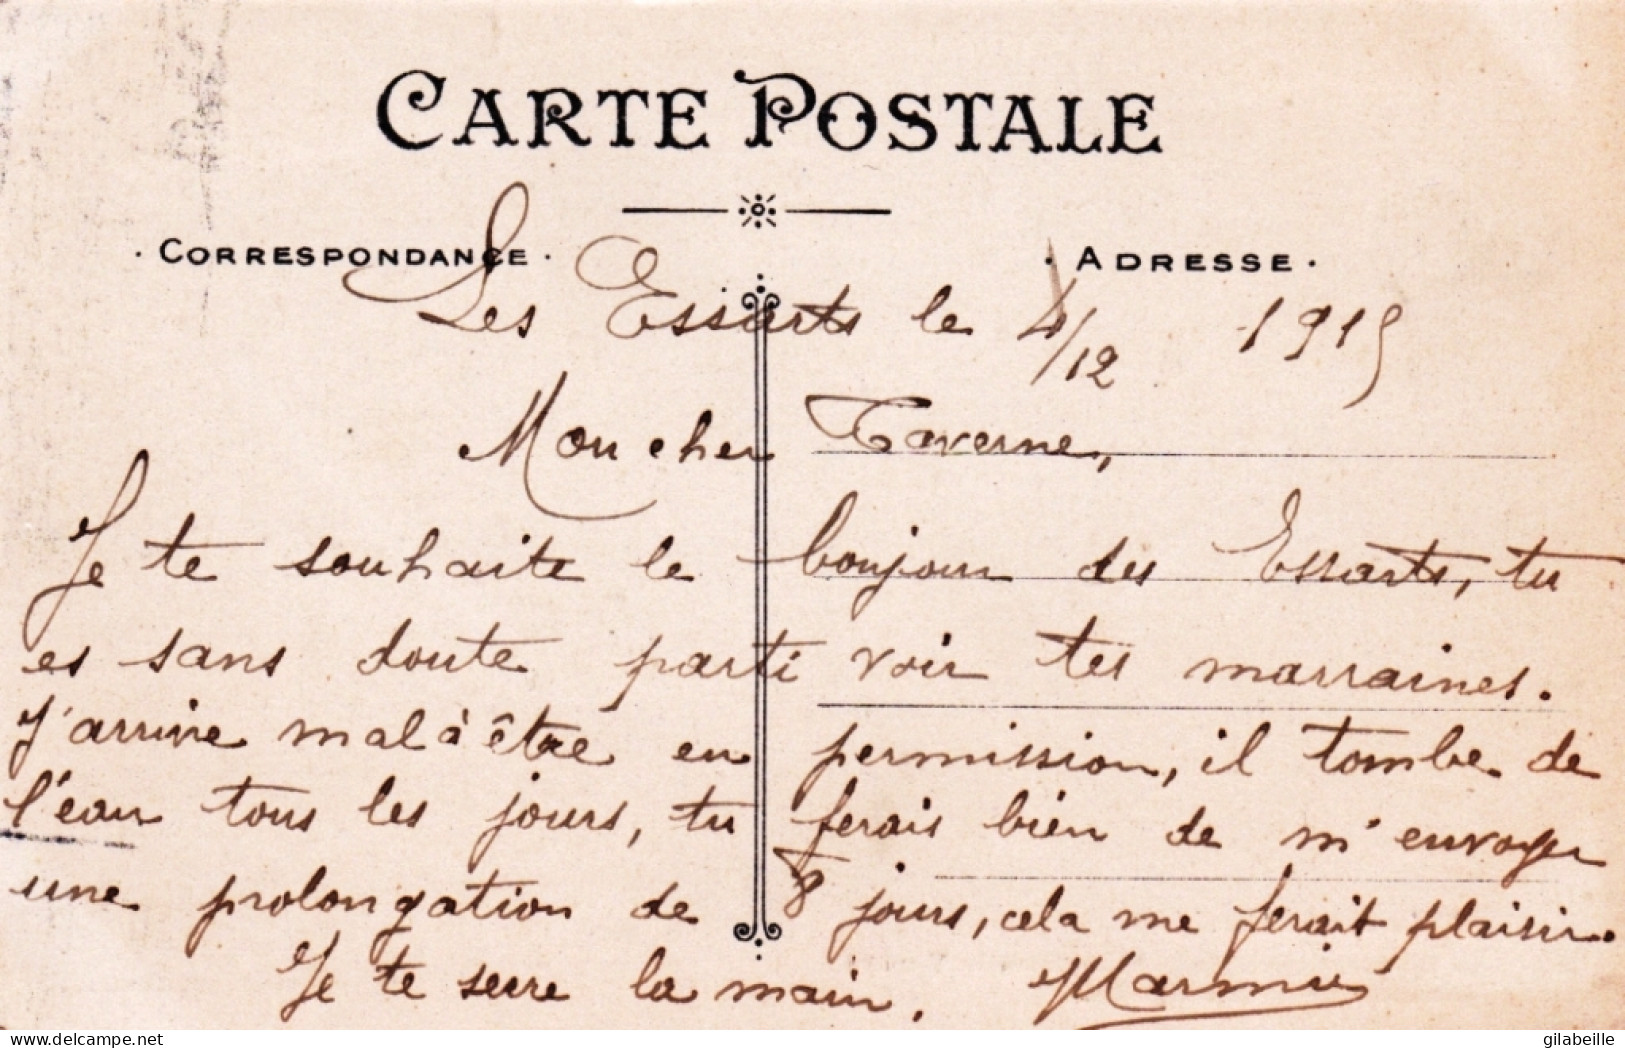 CARTE POSTALE
· CORRESPONDANCE · · ADRESSE ·
Les Essarts le 4/12 1915
Mon cher Taverne,
Je te souhaite le bonjour des Essarts, tu
es sans doute parti voir tes marraines.
J'arrive mal à être en permission, il tombe de
l'eau tous les jours, tu ferais bien de m'envoyer
une prolongation de 8 jours, cela me ferait plaisir.
Je te serre la main.
www.delcampe.net gilabeille